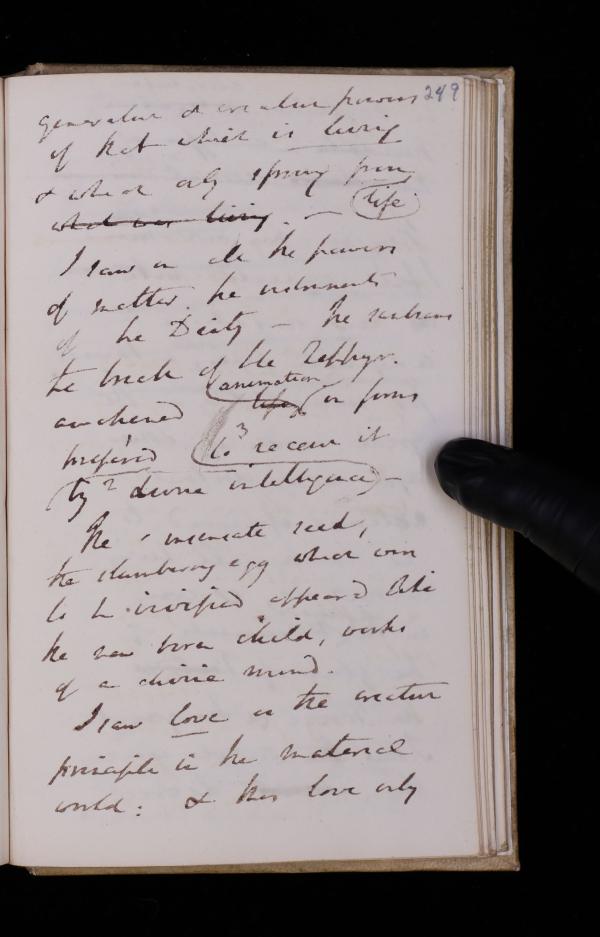 generative & creative powers 249
of that which is living
& which only springs from
what was living. — life
I saw in all the powers
of matter, the instruments
of the Deity — the sunbeams
the breath of the Zephyr.
animation
awakened life in forms
prepared to 3 receive it
by 2 divine intelligence —
The insensate seed,
the slumbering egg which were
to be vivified appeared like
the new born child, works
of a divine mind.
I saw love as the creative
principle in the material
world: & this love only